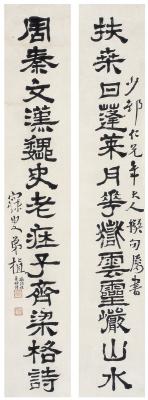 扶桒日蓬萊月華嶽雲靈巖山水
少邨仁兄年大人撰句屬書
周秦文漢魏史老莊子齊梁格詩